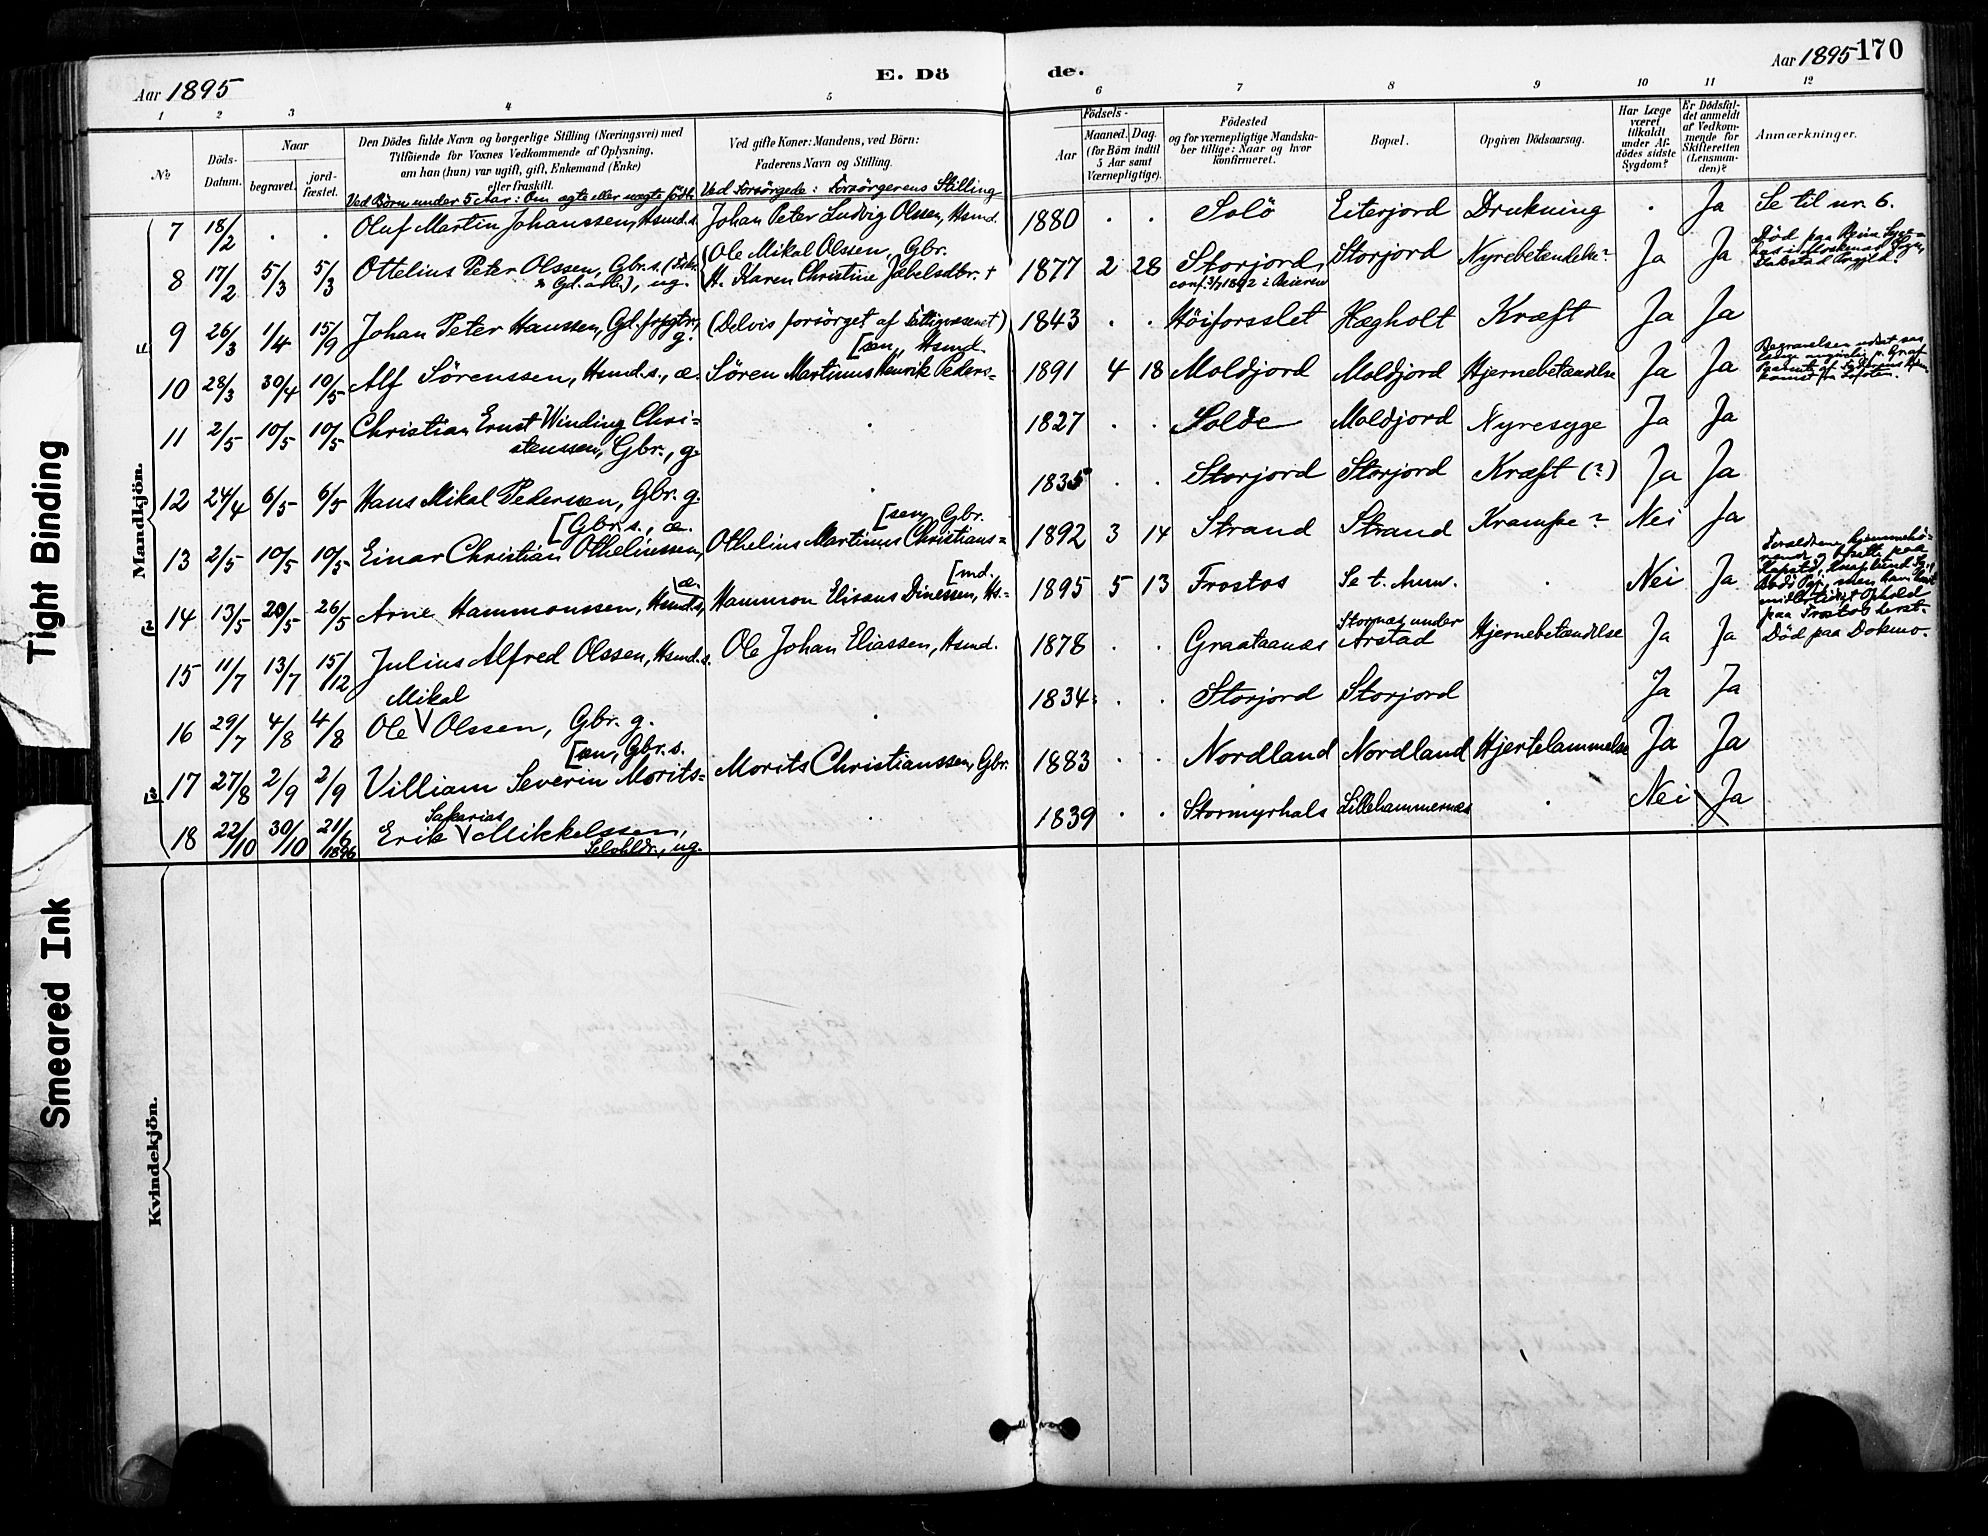 Aar 1895
E. Dö
de.
Aar 1895 170
1 2 3 4 5 6 7 8 9 10 11 12
№
Döds-Datum.
Naar
begravet.
jord-fæstet.
Den Dödes fulde Navn og borgerlige Stilling (Næringsvei) med
Tilföiende for Voxnes Vedkommende af Oplysning,
om han (hun) var ugift, gift, Enkemand (Enke)
eller fraskilt.
Ved Börn under 5 Aar: Om ægte eller uægte född.
Ved gifte Koner: Mandens, ved Börn:
Faderens Navn og Stilling.
Ved Forsörgede: Forsörgerens Stilling
Födsels-
Aar
Maaned. Dag.
(for Börn indtil
5 Aar samt
Værnepligtige).
Födested
og for værnepligtige Mandska-
ber tillige: Naar og hvor
konfirmeret.
Bopæl.
Opgiven Dödsaarsag.
Har Læge
været
tilkaldt
under Af-
dödes sidste
Sygdom?
Er Dödsfal-
det anmeldt
af Vedkom-
mende for
Skifteretten
(Lensman-
den)?
Anmærkninger.
Mandkjön.
7 18/2 . . Oluf Martin Johanssen, Hsmd.s. Johan Peter Ludvig Olssen, Hsmd. 1880 . . Solö Eiterjord Drukning . Ja Se til nr. 6.
8 17/2 5/3 5/3 Ottelius Peter Olssen, Gbr.s. ug. Ole Mikal Olssen, Gbr.
H. Karen Christine Jabelsdtr. + 1877 2 28 Storjord, Storjord Nyrebetændelse? Ja Ja
conf. 3/7 1892 i Beieren
9 26/3 1/4 15/9 Johan Peter Hanssen, g. (Delvis forsörget af Fattigvæsenet) 1843 . . Höiforsslet Hægholt Kræft Ja Ja
10 28/3 30/4 10/5 Alf Sörenssen, Hsmd.s., æ. Sören Martinus Henrik Peders=
[sen, Hsmd. 1891 4 18 Moldjord Moldjord Hjernebetændelse Ja Ja
11 2/5 10/5 10/5 Christian Ernst Winding Chri=
stenssen, Gbr., g. . 1827 . . Solde Moldjord Nyresyge Ja Ja
12 24/4 6/5 6/5 Hans Mikal Pederssen, Gbr. g. . 1835 . . Storjord Storjord Kræft (?) Ja Ja
13 2/5 10/5 10/5 Einar Christian Otheliussen, [Gbr.s., æ. Othelius Martinus Christians=
[sen, Gbr. 1892 3 14 Strand Strand Krampe? Nei Ja
14 13/5 20/5 26/5 Arne Hammonssen, Hsmd.s, æ. Hammon Elisæus Dinessen, Hs.=
[md. 1895 5 13 Frostos Se t. Anm. . Nei Ja
15 11/7 13/7 15/12 Julius Alfred Olssen, Hsmd.s. Ole Johan Eliassen, Hsmd. 1878 . . Graataanæs Stornæs under
Arstad Hjernebetændelse Ja Ja Död paa Dokmo.
16 29/7 4/8 4/8 Ole Mikal Olssen, Gbr. g. . 1834 . . Storjord Storjord Ja Ja
17 27/8 2/9 2/9 Villiam Severin Morits=
[sen, Gbr.s. Morits Christianssen, Gbr. 1883 . . Nordland Nordland Hjertelammelse Ja Ja
18 22/10 30/10 21/6 1896 Erik Sakarias Mikkelssen,
Selvhldr., ug. . 1839 . . Stormyrhals Lillehammernæs . Nei Ja
Kvindekjön.
Tight Binding
Smeared Ink